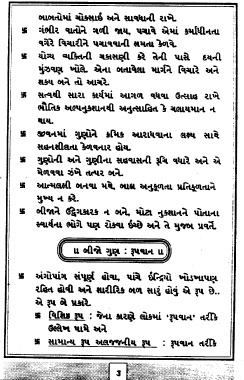 બાબતોમાં ચોક્સાઈ અને સાવધાની રાખે.
卐 ગંભીર વાતોને ગળી જાય, પચાવે એમાં કર્માધીનતા
વગેરે વિચારીને પચાવવાની ક્ષમતા કેળવે.
卐 યોગ્ય વ્યક્તિની ચકાસણી કરે તેની પાસે દયની
મુંઝવણ ખોલે. એના બતાવેલા માર્ગને વિચારે અને
શક્ય બને તો આચરે.
卐 સત્વથી સારા કાર્યમાં આગળ વધવા ઉત્સાહ રાખે
ભૌતિક અલ્પનુકશાનથી અનુત્સાહિત કે ચલાયમાન ન
થાય.
卐 જીવનમાં ગુણોને ક્રમિક આરાધવાના લક્ષ્ય સાથે
સહનશીલતા કેળવનાર હોય.
卐 ગુણોની અને ગુણીના સહવાસની રૂચિ વધારે અને એ
મેળવવા ઝંખે તત્પર બને.
卐 આત્મલક્ષી બનવા મથે, બાહ્ય અનુકૂળતા પ્રતિકૂળતાને
મુખ્ય ન કરે.
卐 બીજાને ઉદ્વેગકારક ન બને, મોટા નુકસાનને પોતાના
સ્વાર્થના ભોગે પણ રોકવા ઈચ્છે અને તે મુજબ પ્રવર્તે.
॥ બીજો ગુણ : રૂપવાન ॥
卐 અંગોપાંગ સંપૂર્ણ હોવા, પાંચે ઈન્દ્રિયો ખોડખાપણ
રહિત હોવી અને શારીરિક બળ સારું હોવું એ રૂપ છે..
એ રૂપ બે પ્રકારે.
卐 વિશિષ્ટ રૂપ : જેના કારણે લોકમાં 'રૂપવાન' તરીકે
ઉલ્લેખ પામે અને
卐 સામાન્ય રૂપ અલજ્જનીય રૂપ : રૂપવાન તરીકે
3